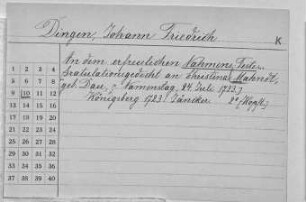 Dingen, Johann Friedrich
K
An dem erfreulichen Nahmens Feste..
Gratulationsgedicht an Christina Mahnd
geb. Dau, z. Namenstag, 24. Juli 1723.)
Königsberg 1723: Zäncker. 2° (Kopft.)
1 2 3 4
5 6 7 8
9 10 11 12
13 14 15 16
17 18 19 20
21 22 23 24
25 26 27 28
29 30 31 32
33 34 35 36
37 38 39 40